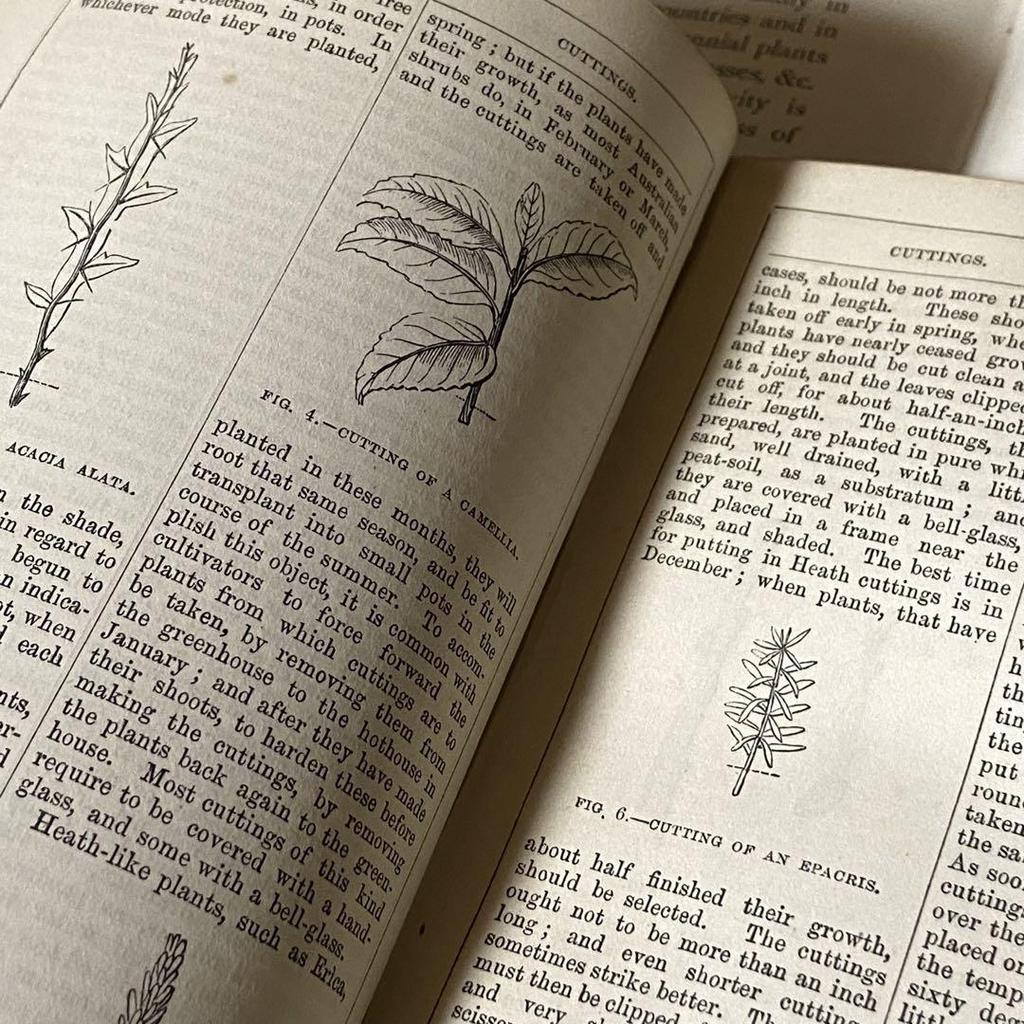 Free
in order
protection, in pots. In
whichever mode they are planted,
ACACIA ALATA.
the shade,
in regard to
begun to
indica-
when
each
CUTTINGS.
spring; but if the plants have made
their growth, as most Australian
shrubs do, in February or March,
and the cuttings are taken off and
FIG. 4.—CUTTING OF A CAMELLIA.
planted in these months, they will
root that same season, and be fit to
transplant into small pots in the
course of the summer. To accom-
plish this object, it is common with
cultivators to force forward the
plants from which cuttings are to
be taken, by removing them from
the greenhouse to the hothouse in
January; and after they have made
their shoots, to harden these before
making the cuttings, by removing
the plants back again to the green-
house. Most cuttings of this kind
require to be covered with a hand-
glass, and some with a bell-glass.
Heath-like plants, such as Erica,
and in
plants
&c.
is
of
CUTTINGS.
cases, should be not more
inch in length. These
taken off early in spring,
plants have nearly ceased
and they should be cut clean
at a joint, and the leaves clipped
cut off, for about half-an-inch
their length. The cuttings,
prepared, are planted in pure
sand, well drained, with a
peat-soil, as a substratum; and
they are covered with a bell-glass,
and placed in a frame near the
glass, and shaded. The best time
for putting in Heath cuttings is in
December; when plants, that have
FIG. 6.—CUTTING OF AN EPACRIS.
about half finished their growth,
should be selected. The cuttings
ought not to be more than an inch
long; and even shorter cuttings
sometimes strike better.
must then be clipped
and very
the
put
taken
the
As soon
cuttings
over the
placed on
the
sixty